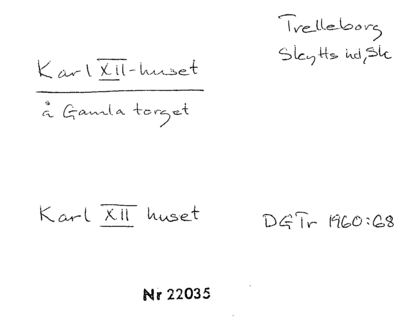 Trelleborg
Skytts hd, Sk
Karl XII-huset
å Gamla torget
Karl XII huset
DGTr 1960:68
Nr 22035